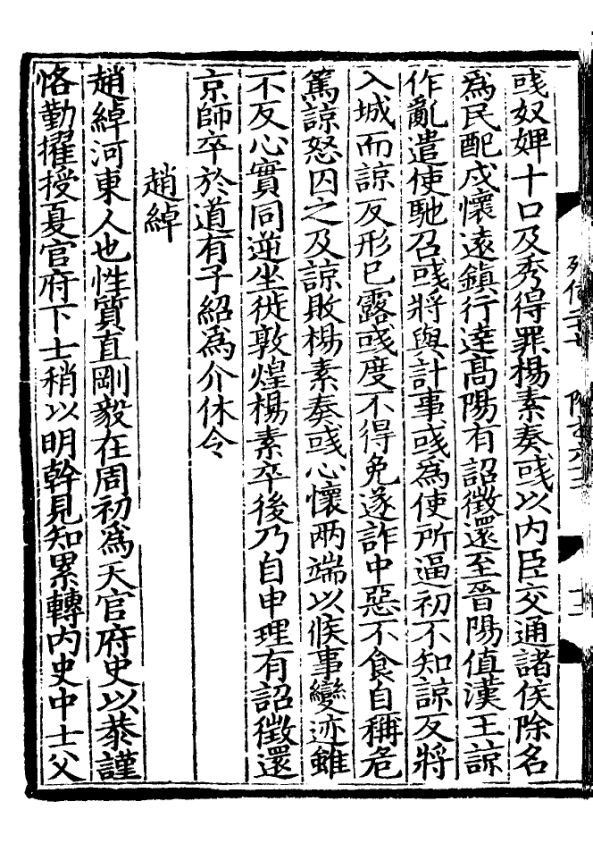 彧奴婢十口及秀得罪楊素奏彧以內臣交通諸侯除名
爲民配戍懷遠鎮行達髙陽有詔徵還至晉陽值漢王諒
作亂遣使馳召彧將與計事彧爲使所逼初不知諒反將
入城而諒反形已露彧度不得免遂詐中惡不食自稱危
篤諒怒囚之及諒敗楊素奏彧心懷兩端以候事變迹雖
不反心實同逆坐徙敦煌楊素卒後乃自申理有詔徵還
京師卒於道有子紹爲介休令
趙綽
趙綽河東人也性質直剛毅在周初爲天官府史以恭謹
恪勤擢授夏官府下士稍以明幹見知累轉內史中士父